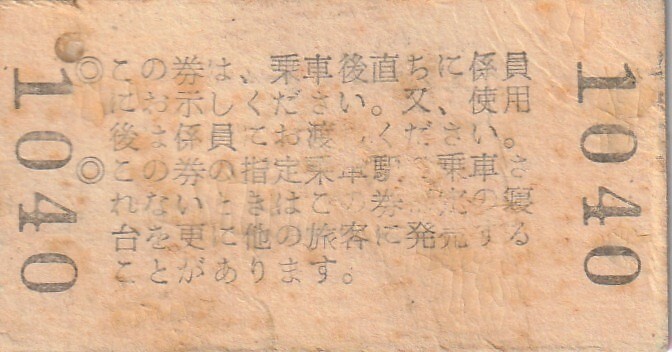 ◎この券は、乗車後直ちに、係員
におしめしください。又、使用
後は係員にお渡しください。
◎この券の指定乗車駅で乗車さ
れないときはこの券指定の寝
台を更に他の旅客に発売する
ことがあります。
1040
1040